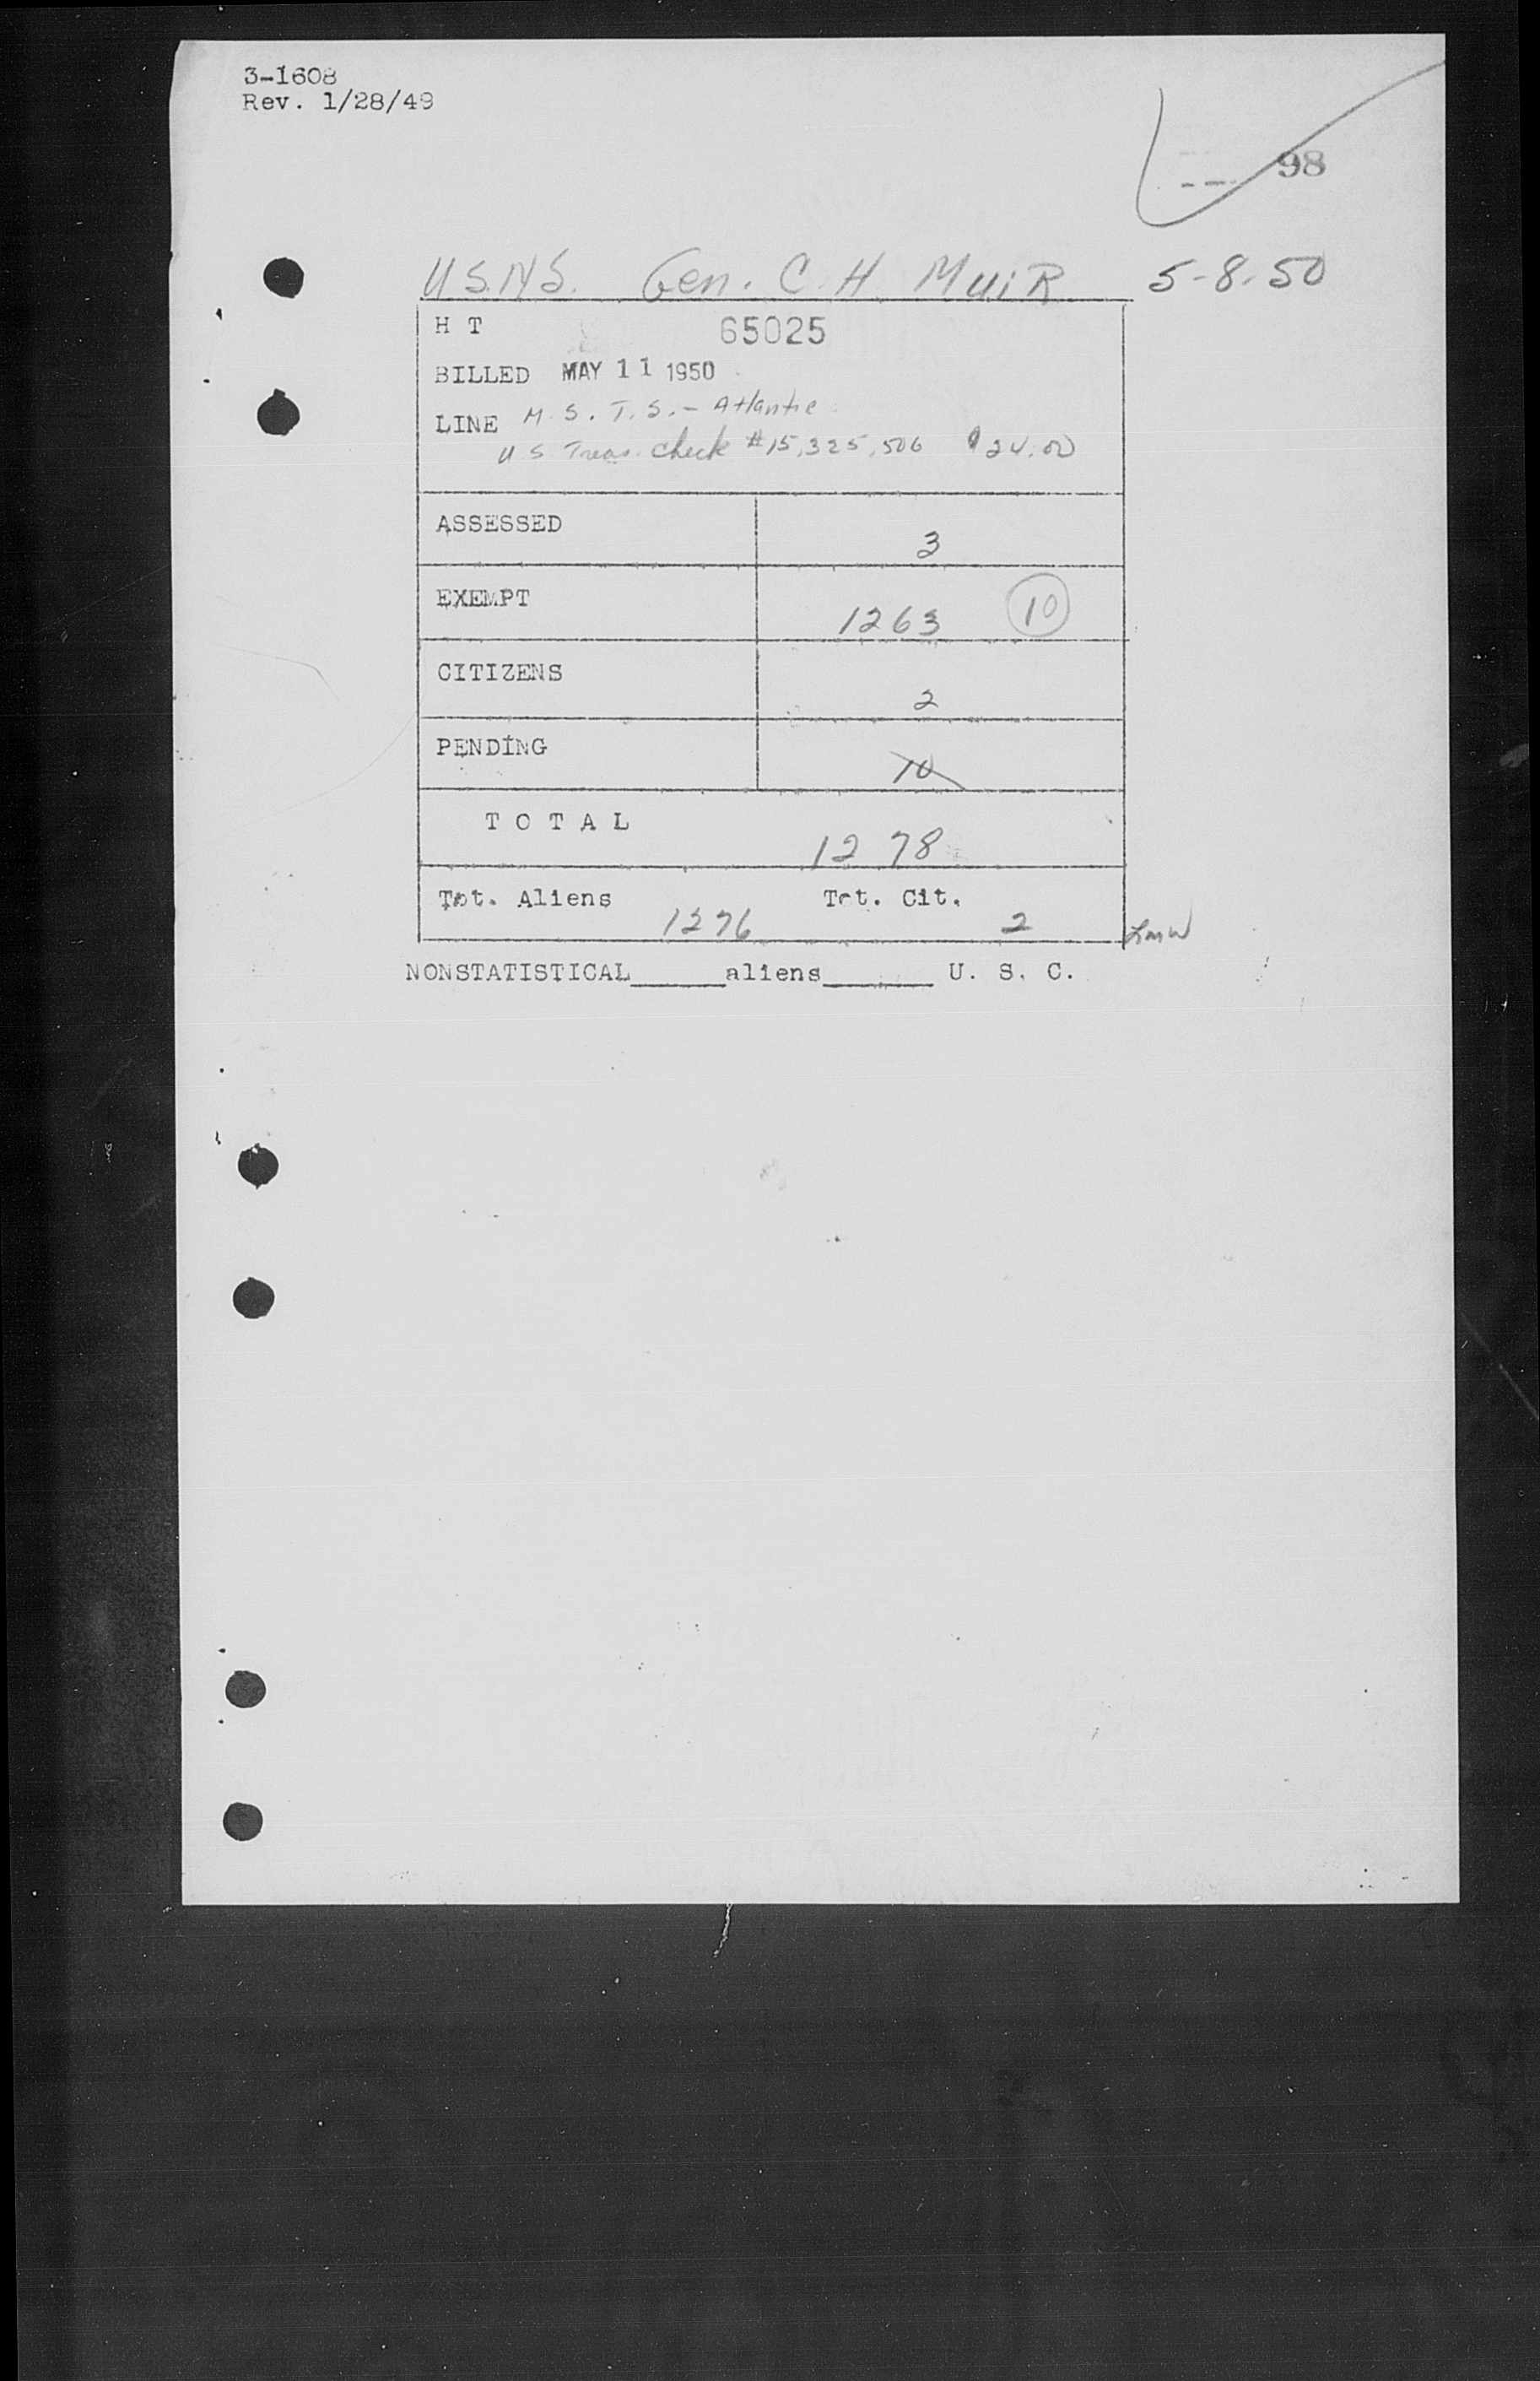 3-1608
Rev. 1/28/49
98
U.S.N.S. Gen. C. H. MuiR 5-8-50
H T 65025
BILLED MAY 11 1950
LINE M. S. T. S. - Atlantic
U S Treas. Check #15,325,506 $24.00
ASSESSED 3
EXEMPT 1263 10
CITIZENS 2
PENDING 10
T O T A L 1278
Tot. Aliens 1276 Tot. Cit. 2
NONSTATISTICAL______aliens_______ U. S. C.